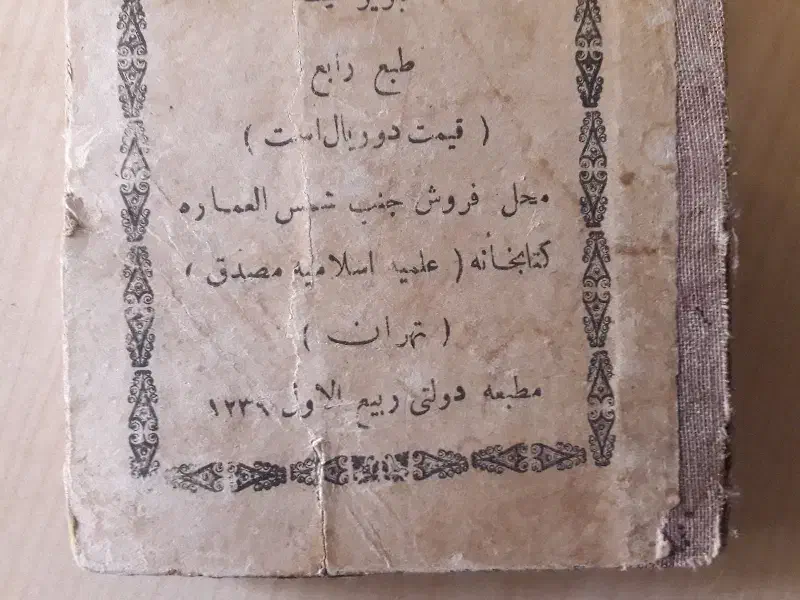 طبع رابع
( قیمت دو ریال است )
محل فروش جنب شمس العماره
کتابخانه ( علمیه اسلامیه مصدق )
( تهران )
مطبعه دولتی ربیع الاول ۱۲۳۹